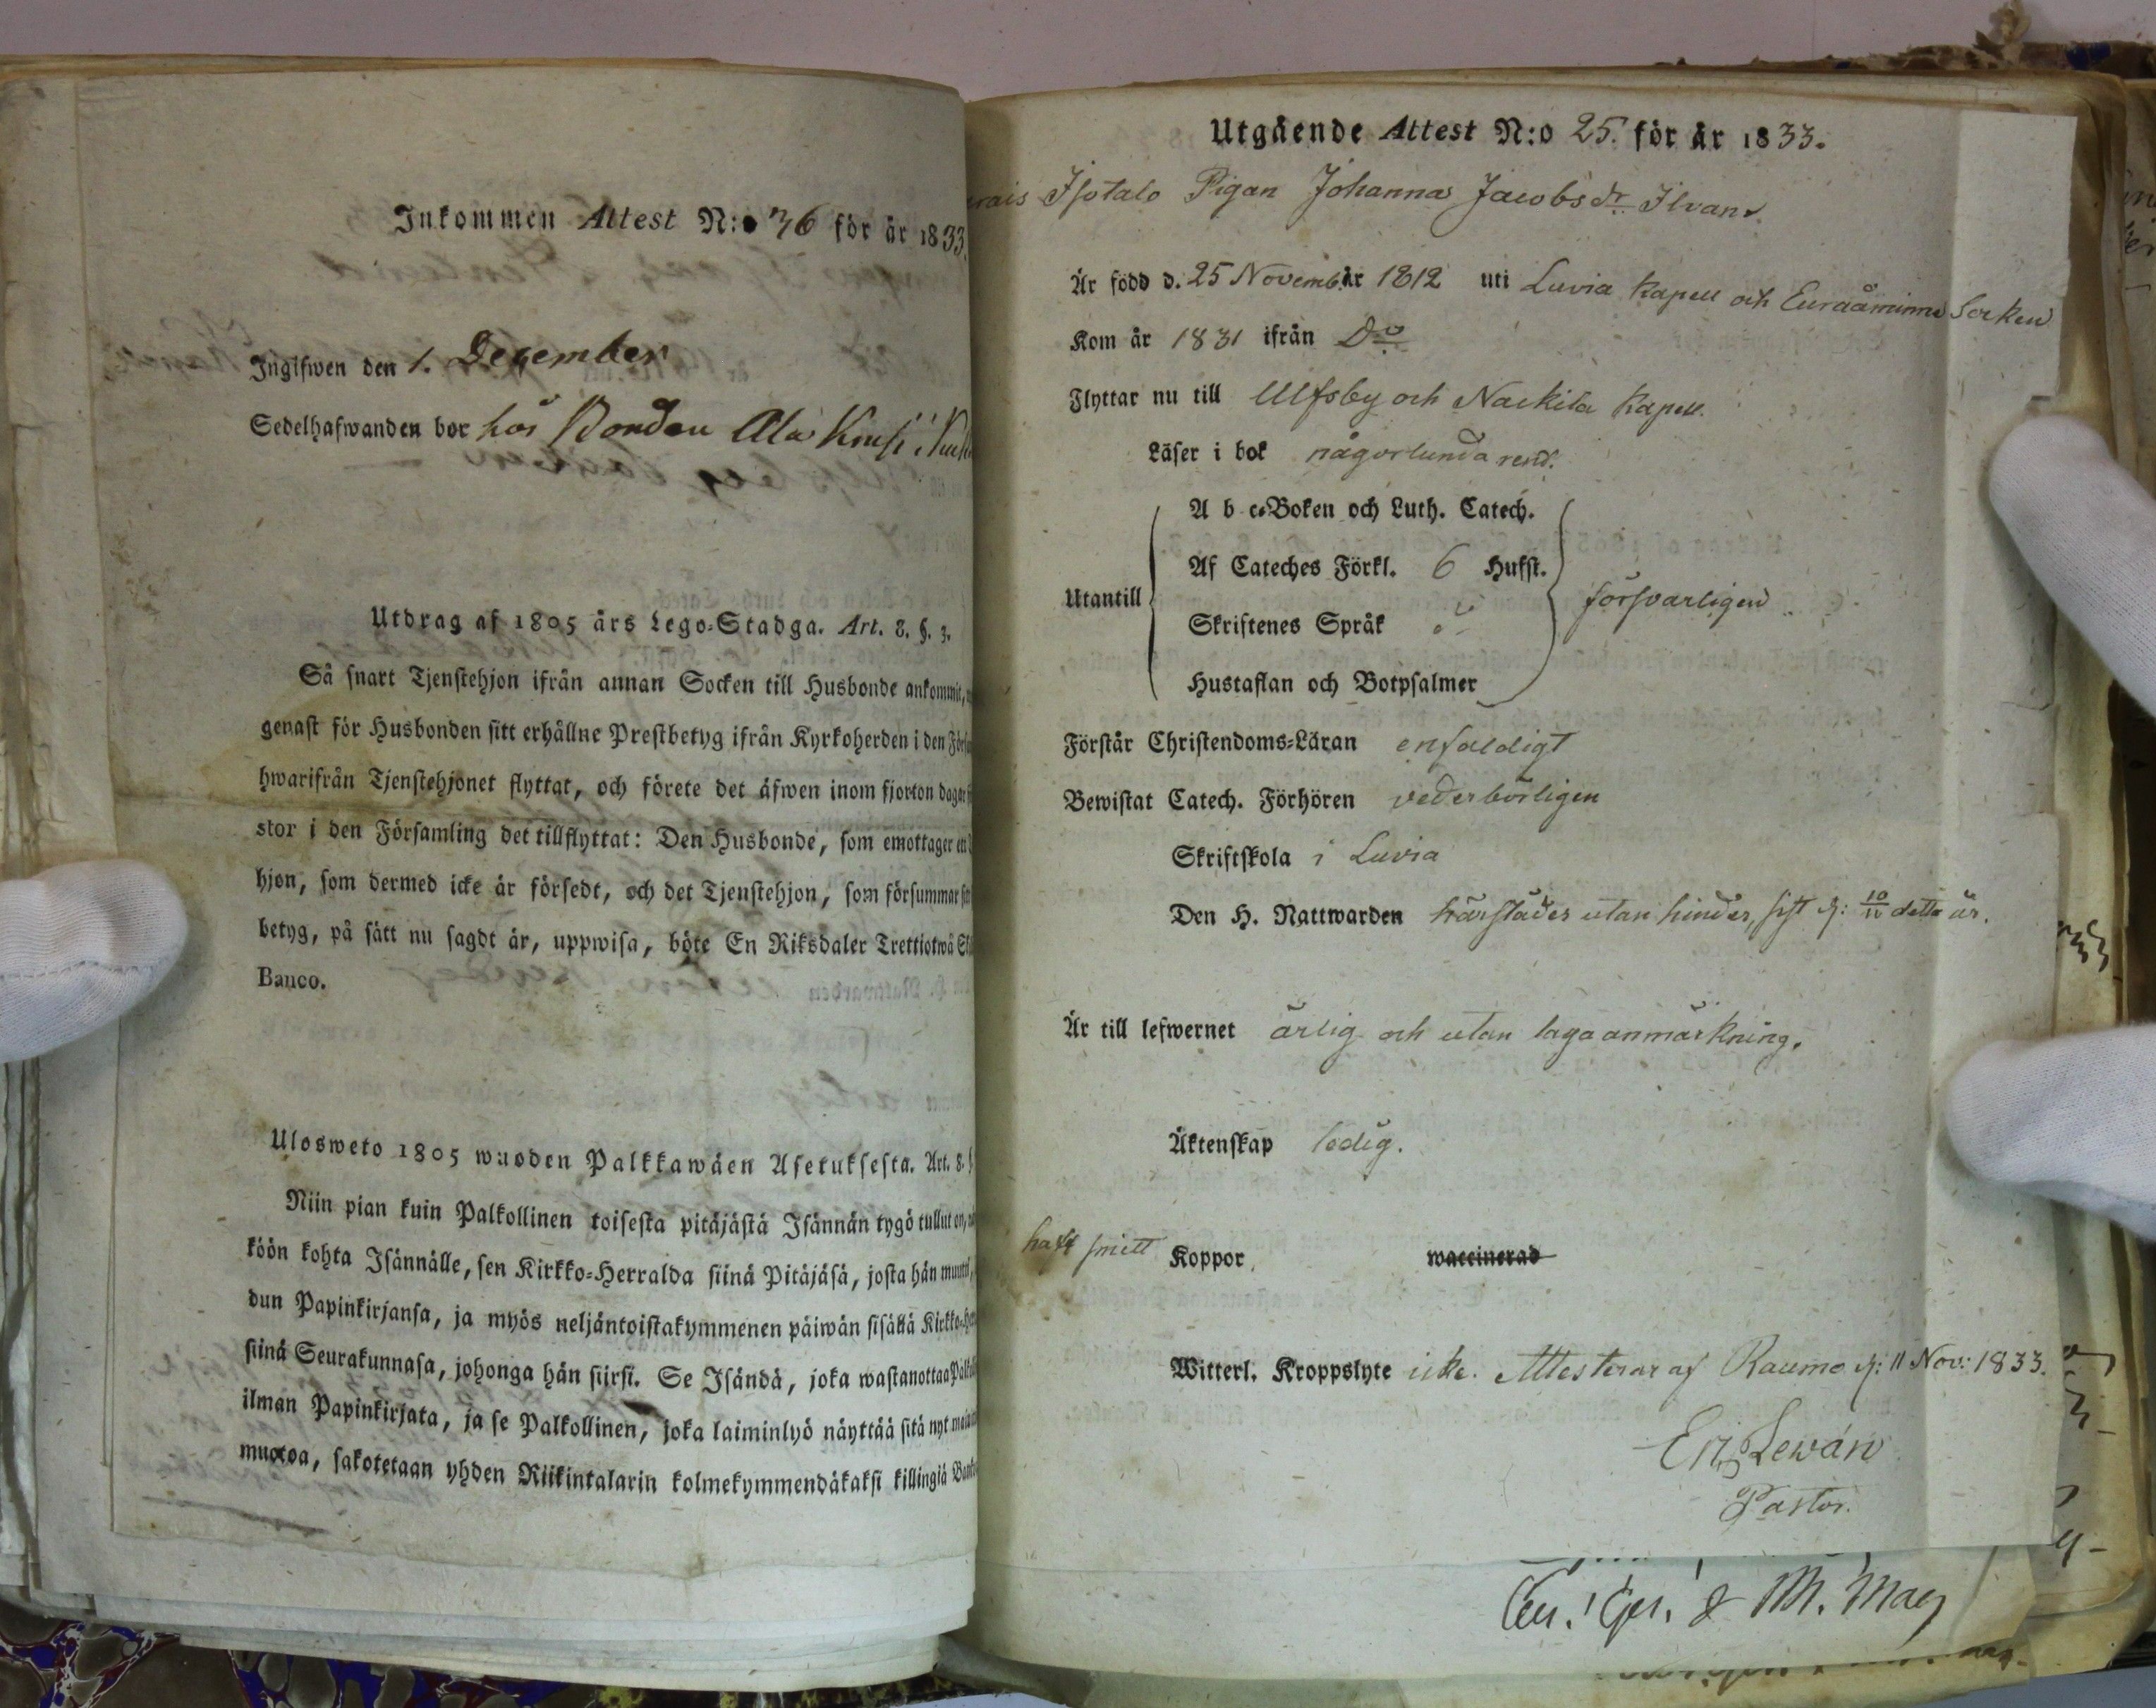 Inkommen Attest N:o 76 för är 1833.
Ingifwen den 1. December
Sedelhafwanden bor hos Bonden Ala
Utdrag af 1805 års Lego-Stadga. Art. 8. §. 3.
Så snart Tjenstehjon ifrån annan Socken till Husbonde ankommit,
genast för Husbonden sitt erhållne Prestbetyg ifrån Kyrkoherden i den
hwarifrån Tjenstehjonet flyttat, och förete det äfwen inom fjorton dagar
stor i den Församling det tillflyttat: Den Husbonde, som emottager
hjon, som dermed icke är försedt, och det Tjenstehjon, som försummar
betyg, på sätt nu sagdt är, uppwisa, böte En Riksdaler Trettiotwå
Banco.
Ulosweto 1805 wuoden Palkkawäen Asetuksesta. Art. 8.
Niin pian kuin Palkollinen toisesta pitäjästä Isännän tygö tullut on,
köön kohta Isännälle, sen Kirkko-Herralda siinä Pitäjäsä, josta hän
dun Papinkirjansa, ja myös neljäntoistakymmenen päiwän sisällä
siinä Seurakunnasa, johonga hän siirsi. Se Isändä, joka wastanottaa
ilman Papinkirjata, ja se Palkollinen, joka laiminlyö näyttää sitä nyt
muotoa, sakotetaan yhden Riikintalarin kolmekymmendäkaksi killingiä
Utgående Attest N:o 25. för år 1833.
Isotalo Pigan Johanna Jacobsdr Ilvan
Är född d. 25 Novemb. år 1812 uti Luvia Kapell och Euraåminne Socken
Kom år 1831 ifrån Do
Flyttar nu till Ulfsby och Nackila Kapell.
Läser i bok någorlunda rend.
A b c-Boken och Luth. Catech.
Af Cateches Förkl. 6 Hufst.
Utantill försvarligen
Skriftenes Språk
Hustaflan och Botpsalmer
Förstår Christendoms-Läran enfaldigt
Bewistat Catech. Förhören vederbörligen
Skriftskola i Luvia
Den H. Nattwarden härstädes utan hinder, sist d: 10/11 detta år.
Är till lefwernet ärlig och utan laga anmärkning.
Äktenskap ledig.
haft Koppor, waccinerad
Witterl. Kroppslyte icke. Attesterar af Raumo d: 11 Nov: 1833.
Lewán
Pastor.